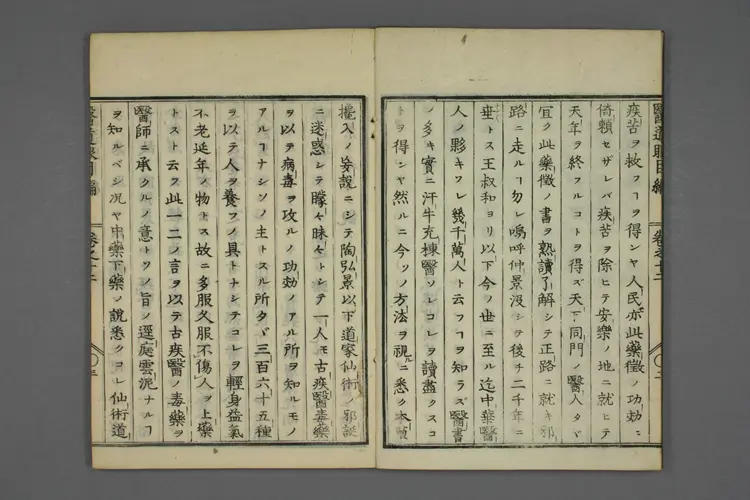 醫道眼目編 卷之十二
疾苦ヲ救フヿヲ得ンヤ人民亦此藥徵ノ功効ニ
倚賴セザレバ疾苦ヲ除ヒテ安樂ノ地ニ就ヒテ
天年ヲ終フルコトヲ得ズ天下同門ノ醫人タヾ
宜ク此藥徵ノ書ヲ熟讀了解シテ正路ニ就キ邪
路ニ走ルヿ勿レ嗚呼仲景沒シテ後チ二千年ニ
垂トス王叔和ヨリ以下今ノ世ニ至ル迄中藥醫
人ノ夥キフレ幾千萬人ト云フヿヲ知ラズ醫書
ノ多キ實ニ汗牛充棟醫ソレコレヲ讀盡クスコ
トヲ得ンヤ然ルニ今ソノ方法ヲ視ルニ悉ク本
攙入ノ妄說ニシテ陶弘景以下道家仙術ノ邪說
ニ迷惑シテ矇々昧々トシテ一人モ古疾醫毒藥
ヲ以テ病毒ヲ攻ルノ功効ノアル所ヲ知ルモノ
アルヿナシソノ主トスル所タヾ三百六十五種
ヲ以テ人ヲ養フノ具トナシテコレヲ輕身益氣
不老延年ノ物トス故ニ多服久服不傷人ヲ上藥
トスト云フ此一二ノ言ヲ以テ古疾醫ノ毒藥ヲ
醫師ニ承クルノ意トソノ旨ノ逕庭雲泥ナルヿ
ヲ知ルベシ況ヤ中藥下藥ノ說悉クコレ仙術道
卷之十二